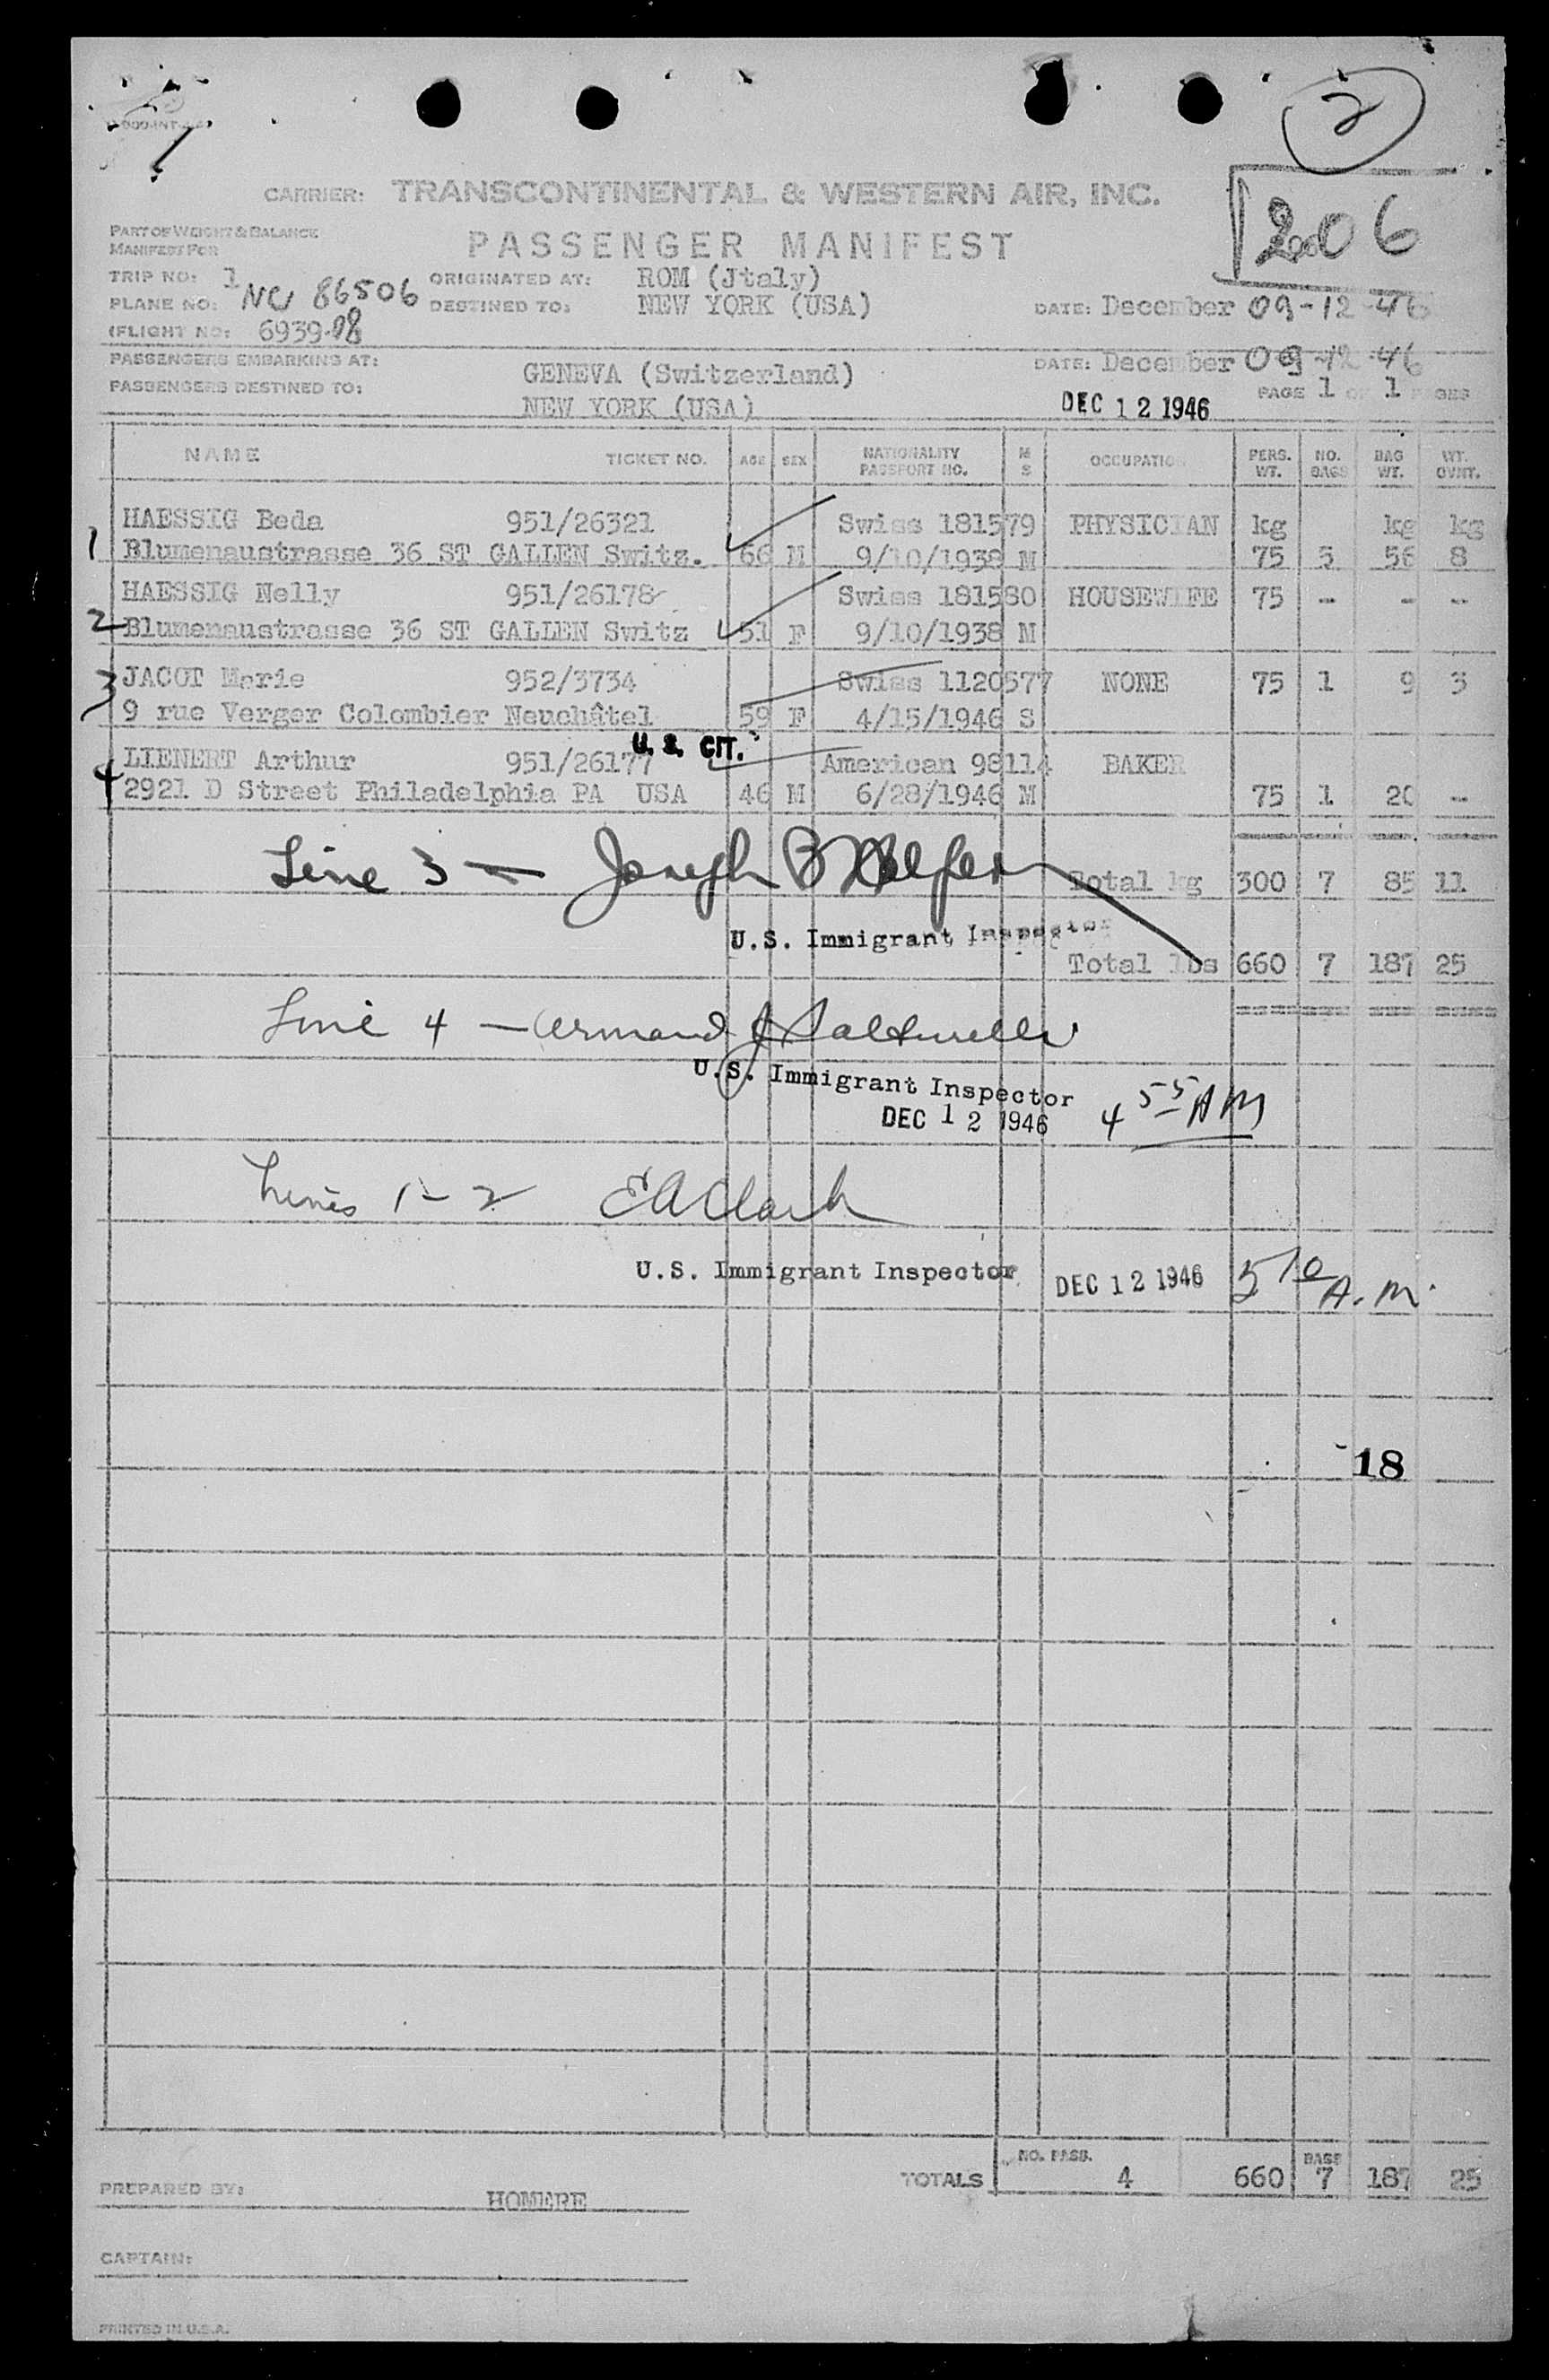 2
CARRIER: TRANSCONTINENTAL & WESTERN AIR, INC.
206
PART OF WEIGHT & BALANCE
MANIFEST FOR
PASSENGER MANIFEST
TRIP NO: 1 ORIGINATED AT: ROM (Jtaly)
PLANE NO: NC 86506 DESTINED TO: NEW YORK (USA) DATE: December 09-12-46
(FLIGHT NO: 6939-08
PASSENGERS EMBARKING AT: GENEVA (Switzerland) DATE: December 09-12-46
PASSENGERS DESTINED TO: NEW YORK (USA) PAGE 1 OF 1 PAGES
DEC 12 1946
NAME TICKET NO. AGE SEX NATIONALITY PASSPORT NO. M S OCCUPATION PERS. WT. NO. BAGS BAG WT. WT. OVNT.
HAESSIG Beda 951/26321 Swiss 181579 PHYSICIAN kg kg kg
1 Blumenaustrasse 36 ST GALLEN Switz. 66 M 9/10/1938 M 75 5 56 8
HAESSIG Nelly 951/26178 Swiss 181580 HOUSEWIFE 75 - - --
2 Blumenaustrasse 36 ST GALLEN Switz 51 F 9/10/1938 M
3 JACOT Marie 952/3734 Swiss 1120577 NONE 75 1 9 3
9 rue Verger Colombier Neuchâtel 59 F 4/15/1946 S
U.S. CIT.
LIENERT Arthur 951/26177 American 98114 BAKER
4 2921 D Street Philadelphia PA USA 46 M 6/28/1946 M 75 1 20 --
Line 3 — Joseph B
Total kg 300 7 85 11
U.S. Immigrant Inspector
Total lbs 660 7 187 25
Line 4 — Armand J
U.S. Immigrant Inspector
DEC 12 1946 4 55 AM
Lines 1-2 EA Clark
U.S. Immigrant Inspector DEC 12 1946 5 10 A.M.
18
NO. PASS. BAGS
TOTALS 4 660 7 187 25
PREPARED BY: HOMERE
CAPTAIN:
PRINTED IN U.S.A.